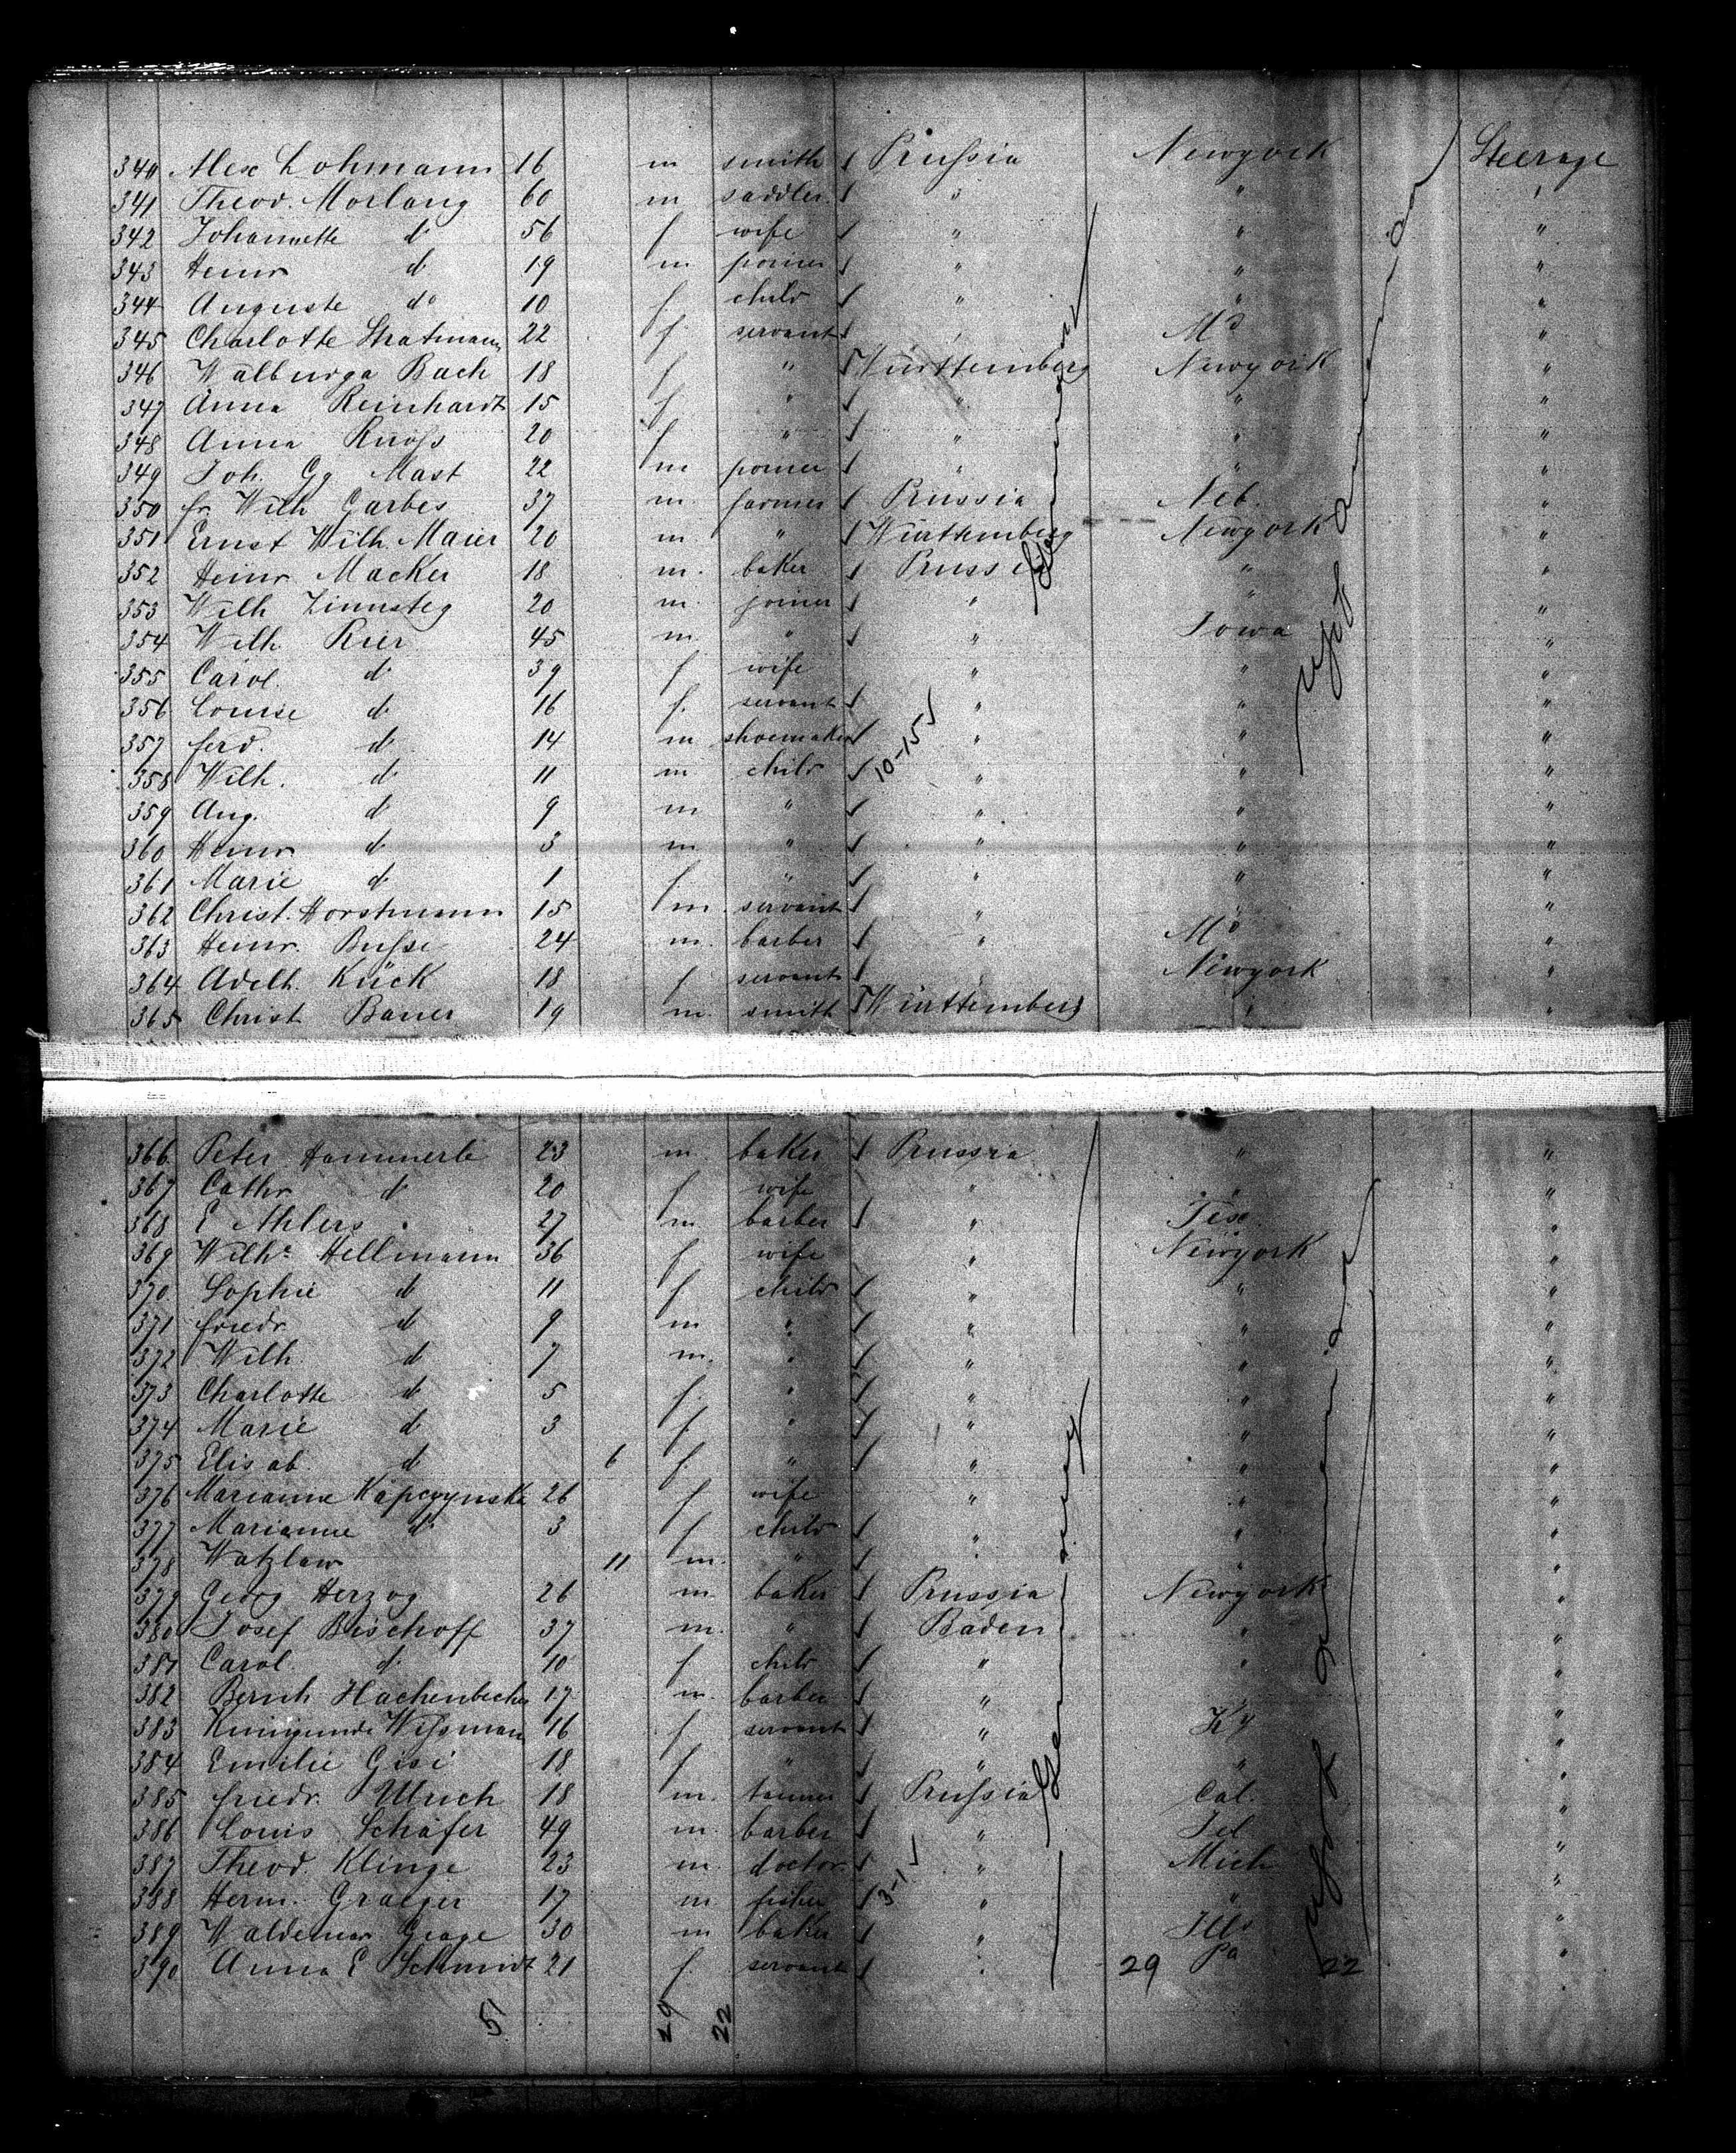 340 Alex Lohmann 16 m smith Prussia Newyork Steerage
341 Theod. Morlang 60 m saddler " " "
342 Johannette do 56 f wife " " "
343 Heinr do 19 m joiner " " "
344 Auguste do 10 f child " " "
345 Charlotte Stratmann 22 f. servant " "
346 Walburga Bach 18 f " Württemberg Newyork "
347 Anna Reinhardt 15 f " " " "
348 Anna Knoss 20 f " " " "
349 Joh. Gg Mast 22 m joiner " " "
350 fr. Wilh Garbes 37 m. farmer Prussia Neb. "
351 Ernst Wilh. Maier 20 m. " Württemberg Newyork "
352 Heinr Macker 18 m. baker Prussia " "
353 Wilh Zinnsteg 20 m. joiner " " "
354 Wilh Rier 45 m. " " Iowa "
355 Carol. do 39 f wife " " "
356 Louise do 16 f. servant " " "
357 ferd. do 14 m shoemaker " " "
358 Wilh. do 11 m child 10-15 " " "
359 Aug. do 9 m " " " "
360 Heinr do 3 m " " " "
361 Marie do 1 f " " " "
362 Christ. Horstmann 15 m. servant " " "
363 Heinr. Busse 24 m. barber " Mo "
364 Adelh. Kück 18 f servant Newyork "
365 Christ Bauer 19 m. smith Württemberg " "
366 Peter Hammerle 23 m. baker Prussia " "
367 Cathr do 20 f wife " " "
368 E Ahlers 27 m barber " Tex. "
369 Wilhe Hellmann 36 f wife " Newyork "
370 Sophie do 11 f child " " "
371 friedr do 9 m " " " "
372 Wilh do 7 m. " " " "
373 Charlotte do 5 f. " " " "
374 Marie do 3 f. " " " "
375 Elisab. do 6 f " " " "
376 Marianne Kapczynska 26 f wife " " "
377 Marianne do 3 f child " " "
378 Watzlaw 11 m. " " " "
379 Georg Herzog 26 m. baker Prussia Newyork "
380 Josef Bischoff 37 m. " Baden " "
381 Carol. do 10 f child " " "
382 Bernh Hachenbecher 17 m. barber " " "
383 Kunigunde Wissmann 16 f servant " Ky "
384 Emilie Gisi 18 f " " " "
385 friedr. Ulrich 18 m. tanner Prussia Cal. "
386 Louis Schäfer 49 m. barber " "
387 Theod. Klinge 23 m. doctor " Mich "
388 Herm. Graeger 17 m 3-1 " " "
389 Waldemar 30 m baker " Ills "
390 Anna E Schmidt 21 f. servant " 29 Pa 22 "
51 29 22
Germany
Germany